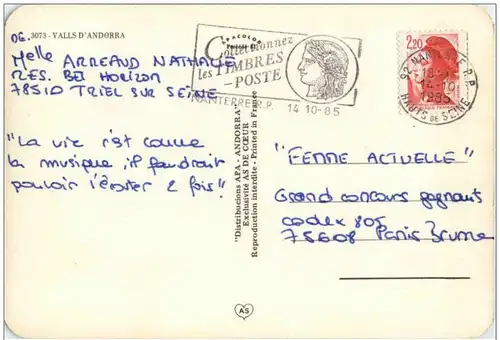 DE.
3073 - VALLS D'ANDORRA
Melle ARREAUD NATHALIE
RES. BEL HORIZON
78510 TRIEL SUR SEINE
"La vie c'est comme
la musique, il faudrait
pouvoir l'écouter 2 fois!"
Collectionnez
les TIMBRES
-POSTE
NANTERRE R.P. 14 10-85
2,20
92 NANTERRE R.P.
14-10
1985
HAUTS DE SEINE
"Distribucions APA - ANDORRA"
Exclusivité AS DE CŒUR
Reproduction interdite - Printed in France
"FEMME ACTUELLE"
Grand concours gagnants
codex 805
75608 Paris Brune
AS